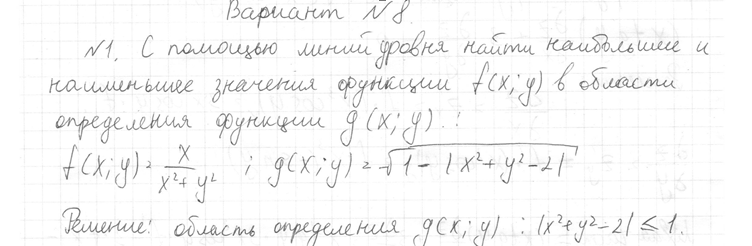 Вариант №8.
№1. С помощью линий уровня найти наибольшее и
наименьшее значения функции f(x;y) в области
определения функции g(x;y).:
f(x;y) = x/(x²+y²) ; g(x;y) = √(1-|x²+y²-2|)
Решение: область определения g(x;y) : |x²+y²-2| ≤ 1.